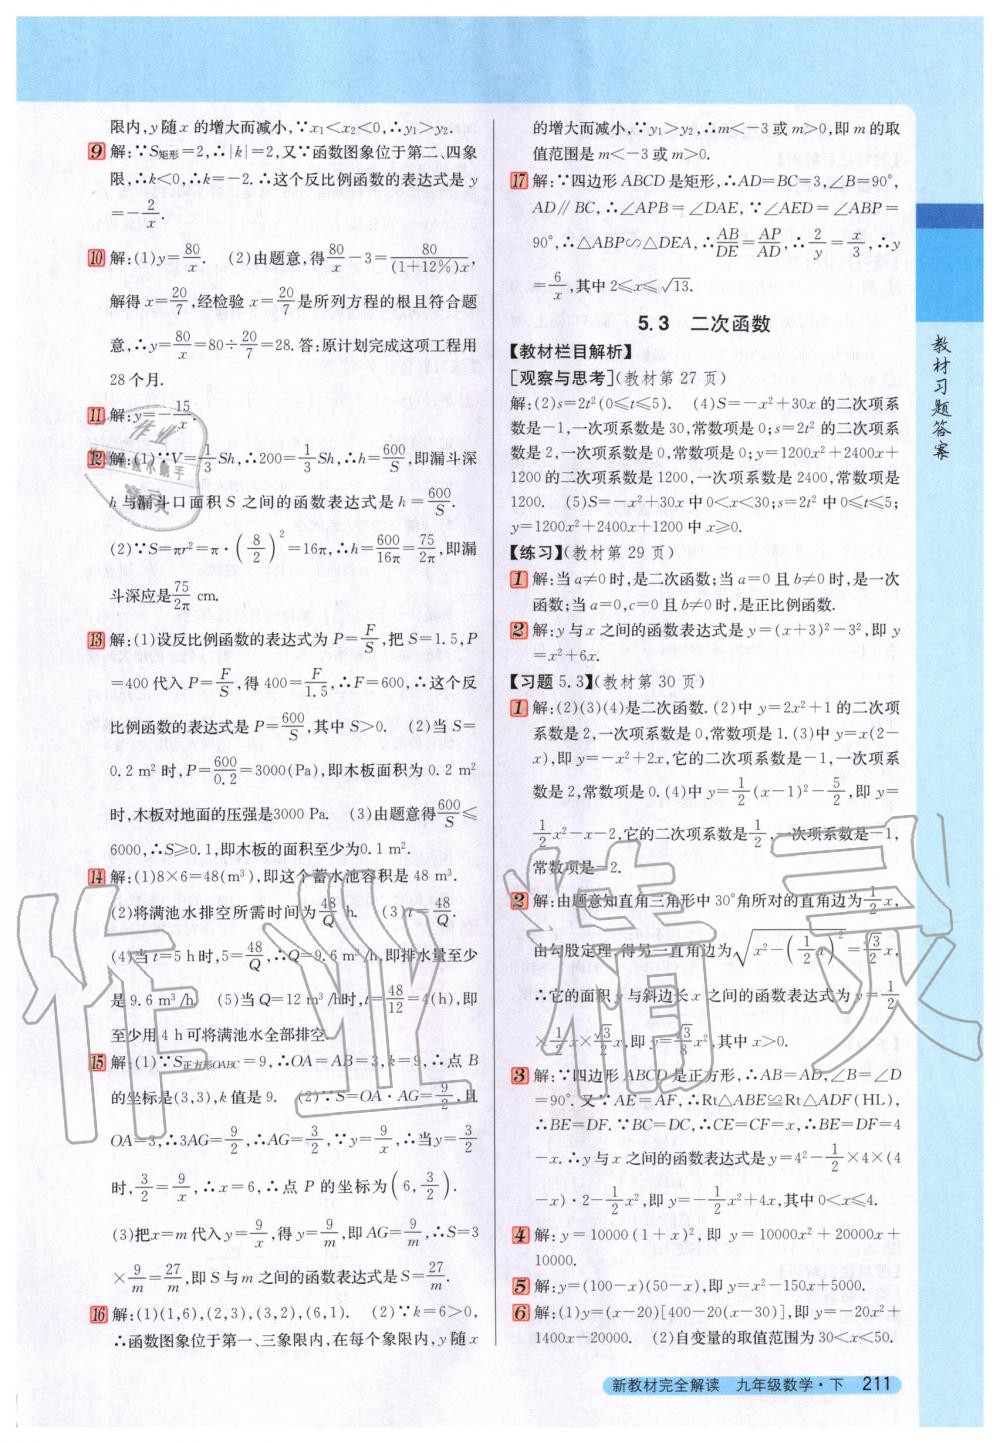 限内,y随x的增大而减小,∵x₁<x₂<0,∴y₁>y₂.
9 解:∵S矩形=2,∴|k|=2,又∵函数图象位于第二、四象
限,∴k<0,∴k=-2.∴这个反比例函数的表达式是y
=-2/x.
10 解:(1)y=80/x. (2)由题意,得80/x-3=80/((1+12%)x),
解得x=20/7,经检验x=20/7是所列方程的根且符合题
意,∴y=80/x=80÷20/7=28.答:原计划完成这项工程用
28个月.
11 解:y=-15/x.
12 解:(1)∵V=1/3Sh,∴200=1/3Sh,∴h=600/S,即漏斗深
h与漏斗口面积S之间的函数表达式是h=600/S.
(2)∵S=πr²=π·(8/2)²=16π,∴h=600/16π=75/2π,即漏
斗深应是75/2π cm.
13 解:(1)设反比例函数的表达式为P=F/S,把S=1.5,P
=400代入P=F/S,得400=F/1.5,∴F=600,∴这个反
比例函数的表达式是P=600/S,其中S>0. (2)当S=
0.2 m²时,P=600/0.2=3000(Pa),即木板面积为0.2 m²
时,木板对地面的压强是3000 Pa. (3)由题意得600/S≤
6000,∴S≥0.1,即木板的面积至少为0.1 m².
14 解:(1)8×6=48(m³),即这个蓄水池容积是48 m³.
(2)将满池水排空所需时间为48/Q h. (3)t=48/Q.
(4)当t=5 h时,5=48/Q,∴Q=9.6 m³/h,即排水量至少
是9.6 m³/h (5)当Q=12 m³/h时,t=48/12=4(h),即
至少用4 h可将满池水全部排空.
15 解:(1)∵S正方形OABC=9,∴OA=AB=3,k=9,∴点B
的坐标是(3,3),k值是9. (2)∵S=OA·AG=9/2,且
OA=3,∴3AG=9/2,∴AG=3/2,∵y=9/x,∴当y=3/2
时,3/2=9/x,∴x=6,∴点P的坐标为(6,3/2).
(3)把x=m代入y=9/x,得y=9/m,即AG=9/m,∴S=3
×9/m=27/m,即S与m之间的函数表达式是S=27/m.
16 解:(1)(1,6),(2,3),(3,2),(6,1). (2)∵k=6>0,
∴函数图象位于第一、三象限内,在每个象限内,y随x
的增大而减小,∵y₁>y₂,∴m<-3或m>0,即m的取
值范围是m<-3或m>0.
17 解:∵四边形ABCD是矩形,∴AD=BC=3,∠B=90°,
AD∥BC,∴∠APB=∠DAE,∵∠AED=∠ABP=
90°,∴△ABP∽△DEA,∴AB/DE=AP/AD,∴2/y=x/3,∴y
=6/x,其中2≤x≤√13.
5.3 二次函数
【教材栏目解析】
[观察与思考](教材第27页)
解:(2)s=2t²(0≤t≤5). (4)S=-x²+30x的二次项系
数是-1,一次项系数是30,常数项是0;s=2t²的二次项系
数是2,一次项系数是0,常数项是0;y=1200x²+2400x+
1200的二次项系数是1200,一次项系数是2400,常数项是
1200. (5)S=-x²+30x中0<x<30;s=2t²中0≤t≤5;
y=1200x²+2400x+1200中x≥0.
【练习】(教材第29页)
1 解:当a≠0时,是二次函数;当a=0且b≠0时,是一次
函数;当a=0,c=0且b≠0时,是正比例函数.
2 解:y与x之间的函数表达式是y=(x+3)²-3²,即y
=x²+6x.
【习题5.3】(教材第30页)
1 解:(2)(3)(4)是二次函数.(2)中y=2x²+1的二次项
系数是2,一次项系数是0,常数项是1.(3)中y=x(2-
x),即y=-x²+2x,它的二次项系数是-1,一次项系
数是2,常数项是0.(4)中y=1/2(x-1)²-5/2,即y=
1/2x²-x-2,它的二次项系数是1/2,一次项系数是-1,
常数项是-2.
2 解:由题意知直角三角形中30°角所对的直角边为1/2x,
由勾股定理,得另一直角边为√(x²-(1/2x)²)=√3/2x,
∴它的面积y与斜边长x之间的函数表达式为y=1/2
×1/2x×√3/2x,即y=√3/8x²,其中x>0.
3 解:∵四边形ABCD是正方形,∴AB=AD,∠B=∠D
=90°.又∵AE=AF,∴Rt△ABE≌Rt△ADF(HL),
∴BE=DF.∵BC=DC,∴CE=CF=x,∴BE=DF=4
-x.∴y与x之间的函数表达式是y=4²-1/2×4×(4
-x)·2-1/2x²,即y=-1/2x²+4x,其中0<x≤4.
4 解:y=10000(1+x)²,即y=10000x²+20000x+
10000.
5 解:y=(100-x)(50-x),即y=x²-150x+5000.
6 解:(1)y=(x-20)[400-20(x-30)],即y=-20x²+
1400x-20000. (2)自变量的取值范围为30<x<50.
教材习题答案
新教材完全解读 九年级数学·下 211
作业精灵